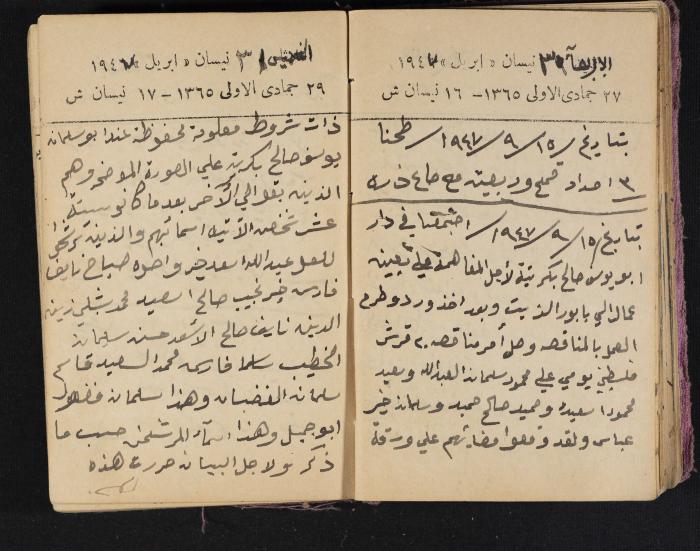 الاربعاء ٣ نيسان « ابريل » ١٩٤٧
٢٧ جمادى الاولى ١٣٦٥ – ١٦ نيسان ش
بتاريخ / ١٥ / ٩ / ١٩٤٧ / طحنا
٣ امداد قمح وربعيتين مع صاع ذره
بتاريخ / ١٥ / ٩ / ١٩٤٧ / اجتمعنا في دار
ابو يوسف صالح بكريه لأجل المفاهمة على تعيين
عمال الي بابور الزيت وبعد اخذ ورد وطرح
العمل بالمناقصه وصل أمر مناقصه ٢٠ قرش
فلسطيني يومي علي محمود سلمان العبدالله وسعيد
محمود اسعيد وحميد صالح حميد وسلمان خير
عباس ولقد وقعوا مضايتهم علي ورقة
الثلاثاء ٣ نيسان « ابريل » ١٩٤٧
٢٩ جمادى الاولى ١٣٦٥ – ١٧ نيسان ش
ذات شروط معلومة محفوظة عند ابو سلمان
يوسف صالح بكريه علي الصورة الموضحه وهم
الذين بقوا الي الآخر بعدما كانو ستة
عشر شخص الآتية اسمائهم والذين ترشحوا
للعمل عبدالله اسعد خير واحمد صباح نايف
فارس خير نجيب صالح اسعيد محمد شبلي زين
الدين نايف صالح الأسعد حسن سليمان
الخطيب سلمان فارس محمد السعيد قاسم
سلمان الغضبان وهذا سلمان فضول
ابو جبل وهذا اسماء المرشحين حسب ما
ذكر ولاجل البيان حررت هذه